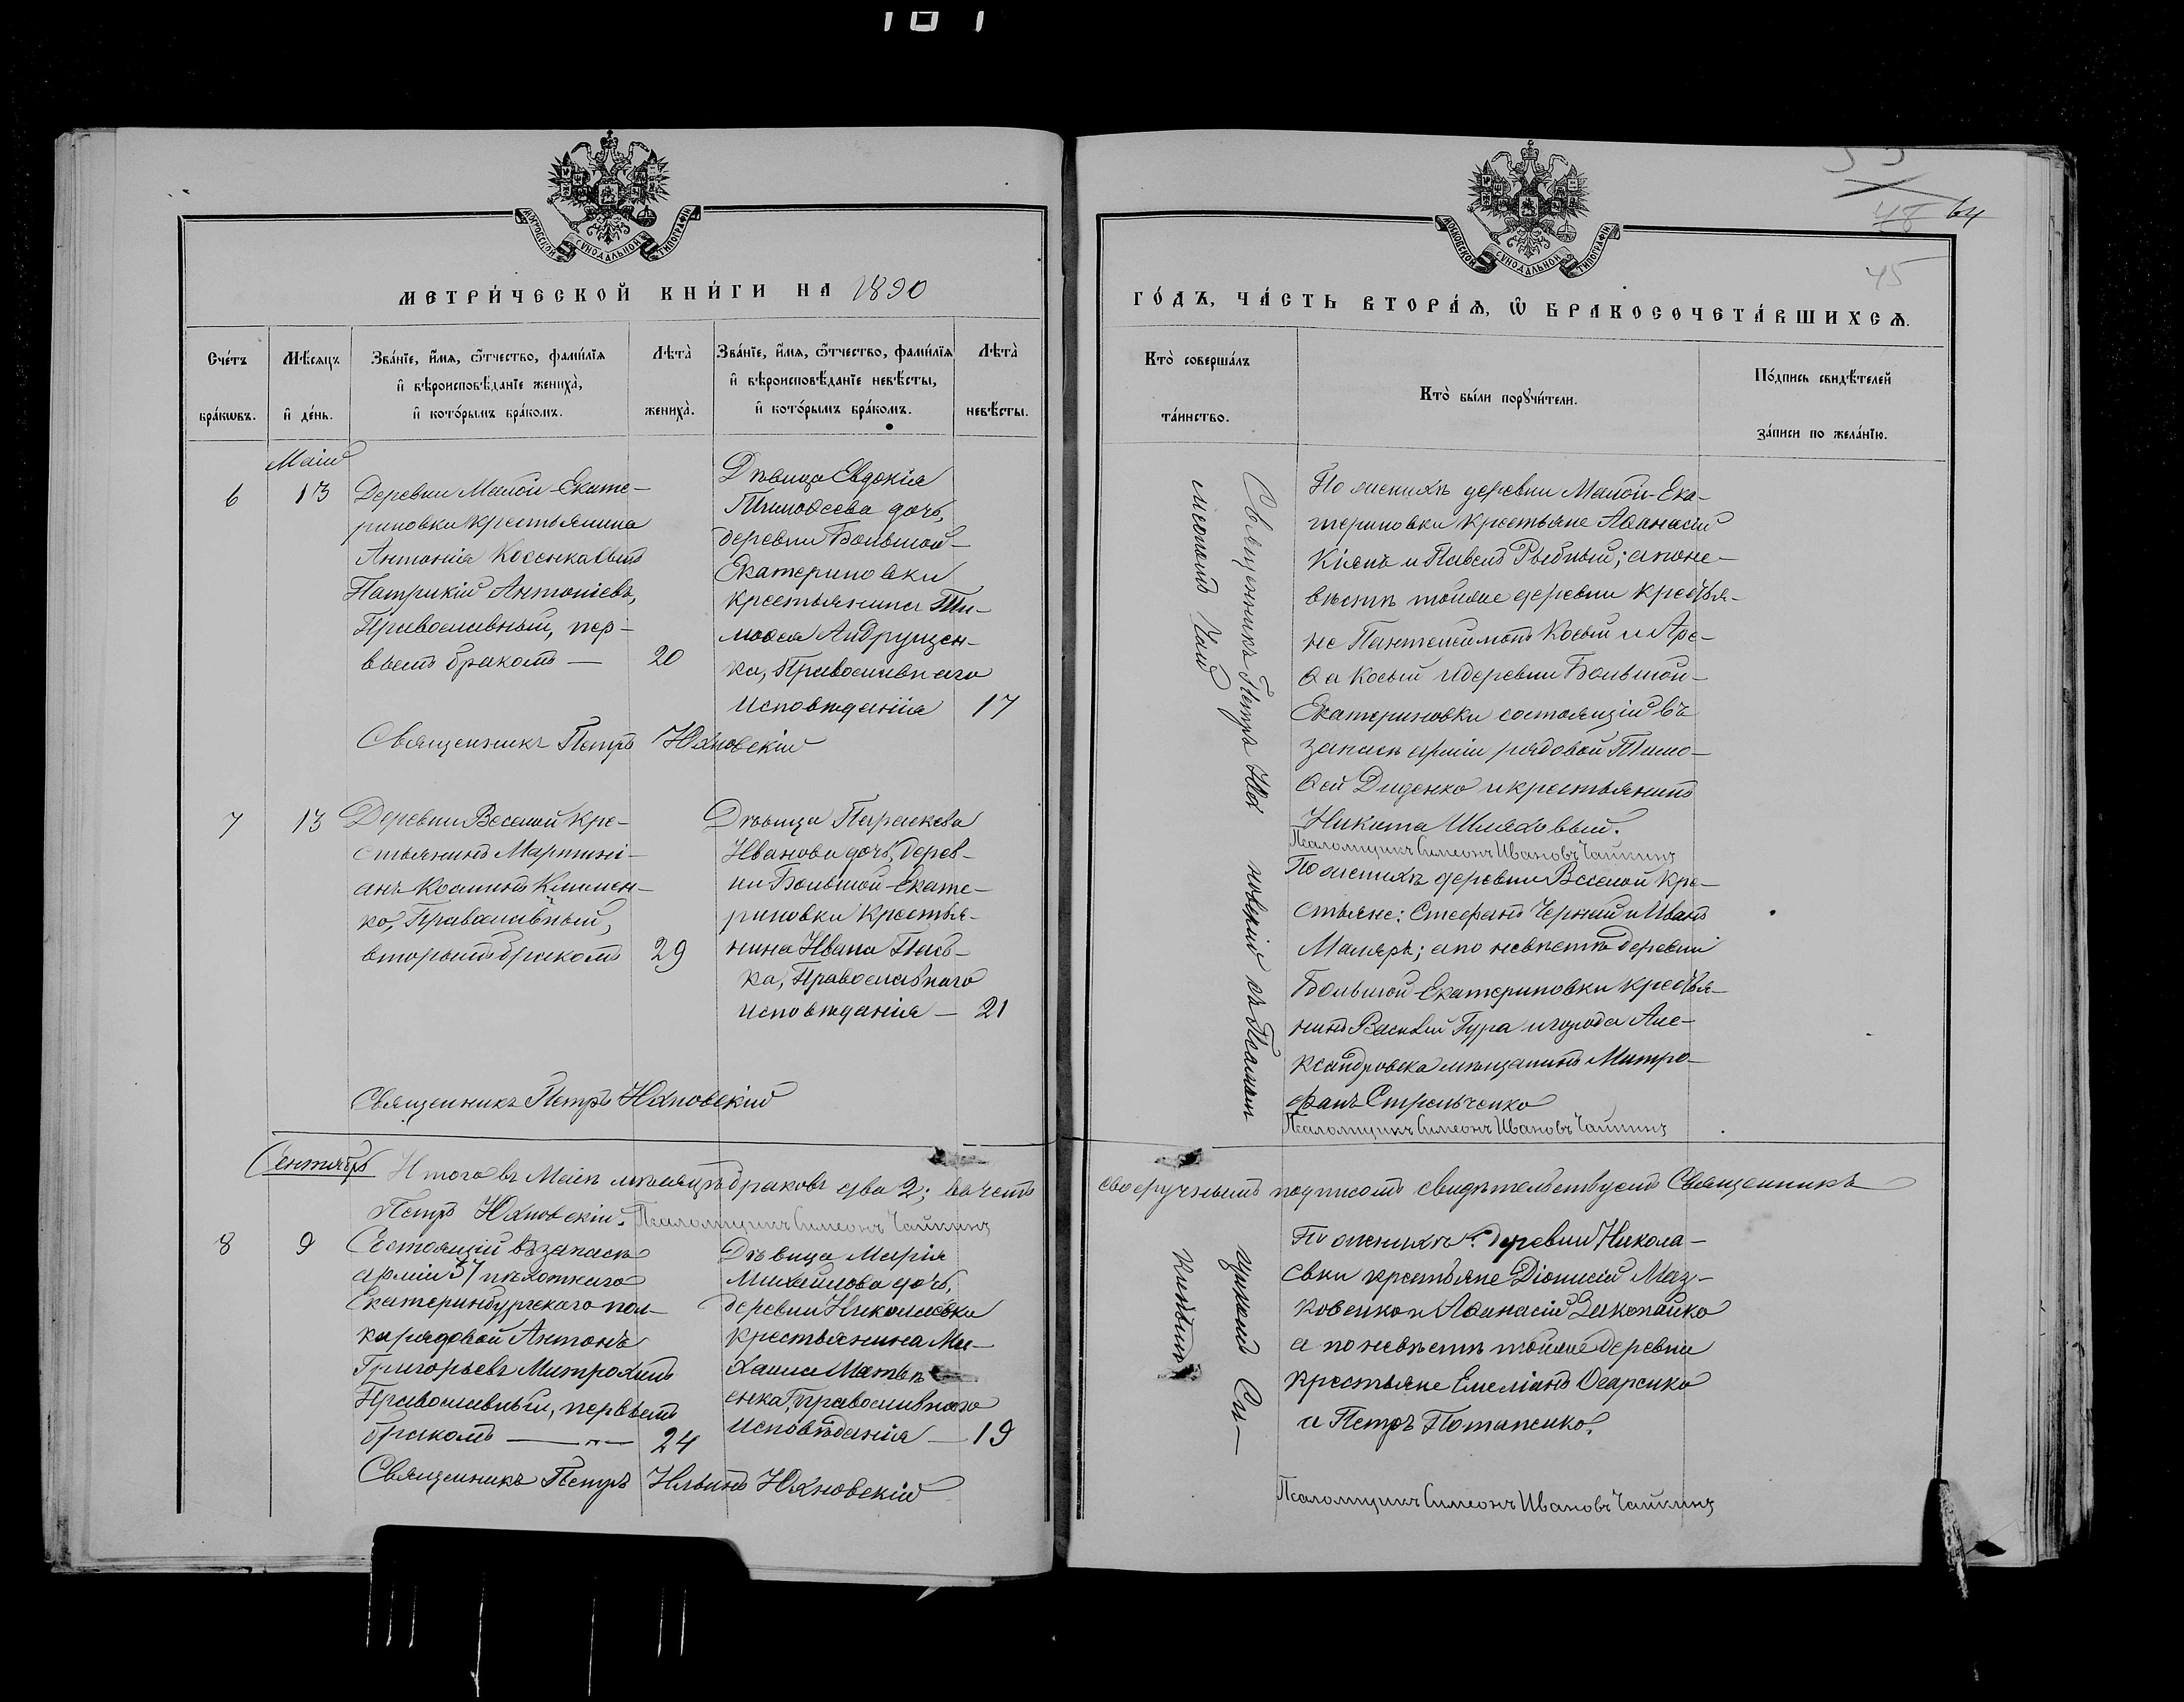 МОСКОВСКОЙ СѴНОДАЛЬНОЙ ТИПОГРАФІИ
МЕТРИ́ЧЕСКОЙ КНИ́ГИ НА 1890
Сче́тъ бра́кѡвъ.
Мѣ́сяцъ и҆ де́нь.
Зва́нїе, и҆́мя, ѻ҆́тчество, фами́лїя
и҆ вѣроисповѣ́данїе жениха̀,
и҆ кото́рымъ бра́комъ.
Лѣта̀ жениха̀.
Зва́нїе, и҆́мя, ѻ҆́тчество, фами́лїя
и҆ вѣроисповѣ́данїе невѣ́сты,
и҆ кото́рымъ бра́комъ.
Лѣта̀ невѣ́сты.
Маій
6
13
Деревни Малой-Екате-
риновки крестьянина
Антонія Косенка сынъ
Патрикій Антоніевъ,
Православный, пер-
вымъ бракомъ —
20
Дѣвица Евдокія
Тимоѳеева дочь,
деревни Большой-
Екатериновки
крестьянина Ти-
моѳея Андрущен-
ка, Православнаго
исповѣданія
17
Священникъ Петръ Юхновскій
7
13
Деревни Веселой кре-
стьянинъ Мартини-
анъ Косминъ Климен-
ко, Православный,
вторымъ бракомъ
29
Дѣвица Параскева
Иванова дочь, дерев-
ни Большой-Екате-
риновки крестья-
нина Ивана
ка, Православнаго
исповѣданія —
21
Священникъ Петръ Юхновскій
Сентябрь
Итого въ Маіѣ мѣсяцѣ браковъ два 2; въ чемъ
Петръ Юхновскій. Псаломщикъ Симеонъ Чайкинъ
8
9
Состоящій въ запасѣ
арміи 37 пѣхотнаго
Екатеринбургскаго пол-
ка рядовой Антонъ
Григорьевъ Митрохинъ
Православный, первымъ
бракомъ — „ —
24
Дѣвица Марія
Михайлова дочь,
деревни Николаевки
крестьянина Ми-
хаила Матвѣ
енка, православнаго
исповѣданія —
19
Священникъ Петръ Ильинъ Юхновскій
МОСКОВСКОЙ СѴНОДАЛЬНОЙ ТИПОГРАФІИ
48 64
45
ГО́ДЪ, ЧА́СТЬ ВТОРА́Я, Ѡ҆ БРАКОСОЧЕТА́ВШИХСЯ.
Кто̀ соверша́лъ та́инство.
Кто̀ бы́ли порꙋчи́тели.
По́дпись свидѣ́телей за́писи по жела́нїю.
Священникъ Петръ Юх
новскій съ Псалом
щикомъ Си-
меономъ Чай
кинымъ
По женихѣ деревни Малой-Ека-
териновки крестьяне Аѳанасій
Кіянъ и Павелъ Рыбный; а по не-
вѣстѣ тойже деревни крестья-
не Пантелеймонъ Косый и Аре-
ѳа Косый и деревни Большой-
Екатериновки состоящій въ
запасѣ арміи рядовой Тимо-
ѳей Диденко и крестьянинъ
Никита Шляховый.
Псаломщикъ Симеонъ Ивановъ Чайкинъ
По женихѣ деревни Веселой кре-
стьяне: Стефанъ Черный и Иванъ
Маляръ; а по невѣстѣ деревни
Большой-Екатериновки крестья-
нинъ Василій Гура и города Але-
ксандровска мѣщанинъ Митро-
фанъ Стрельченко
Псаломщикъ Симеонъ Ивановъ Чайкинъ
своеручнымъ подписомъ свидѣтельствуемъ Священникъ
По женихѣ: деревни Никола-
евки крестьяне Діонисій Маз-
ковенко и Аѳанасій Закопайко
а по невѣстѣ тойже деревни
крестьяне Емеліанъ Охаренко
и Петръ Потапенко.
Псаломщикъ Симеонъ Ивановъ Чайкинъ